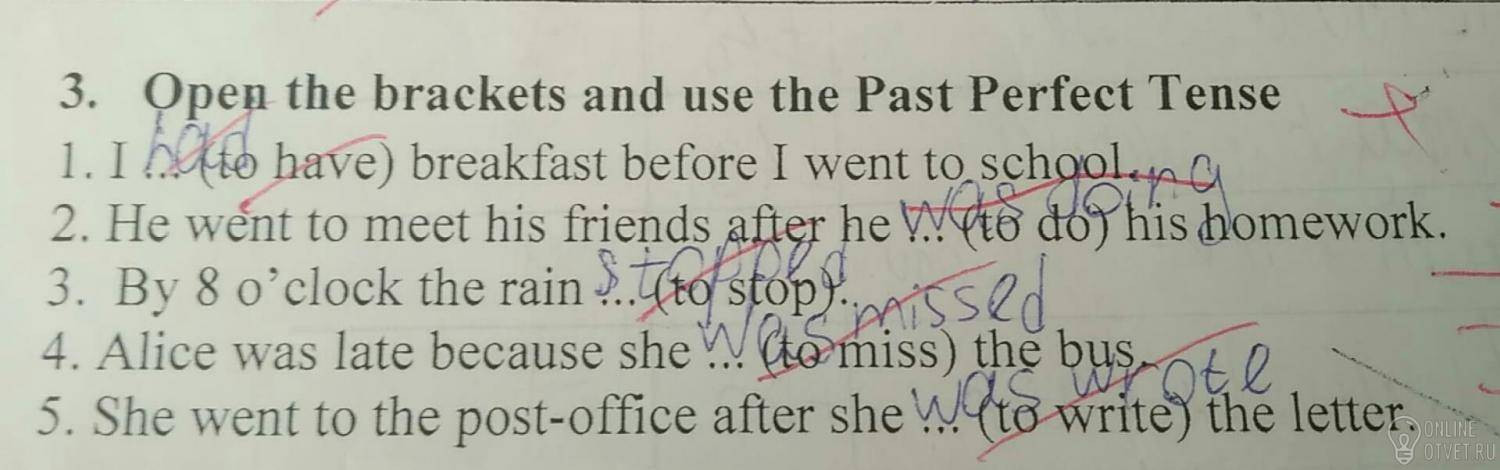 3. Open the brackets and use the Past Perfect Tense
had
1. I ... (to have) breakfast before I went to school.
was doing
2. He went to meet his friends after he ... (to do) his homework.
stopped
3. By 8 o'clock the rain ... (to stop).
was missed
4. Alice was late because she ... (to miss) the bus.
was wrote
5. She went to the post-office after she ... (to write) the letter.
ONLINE
OTVET.RU